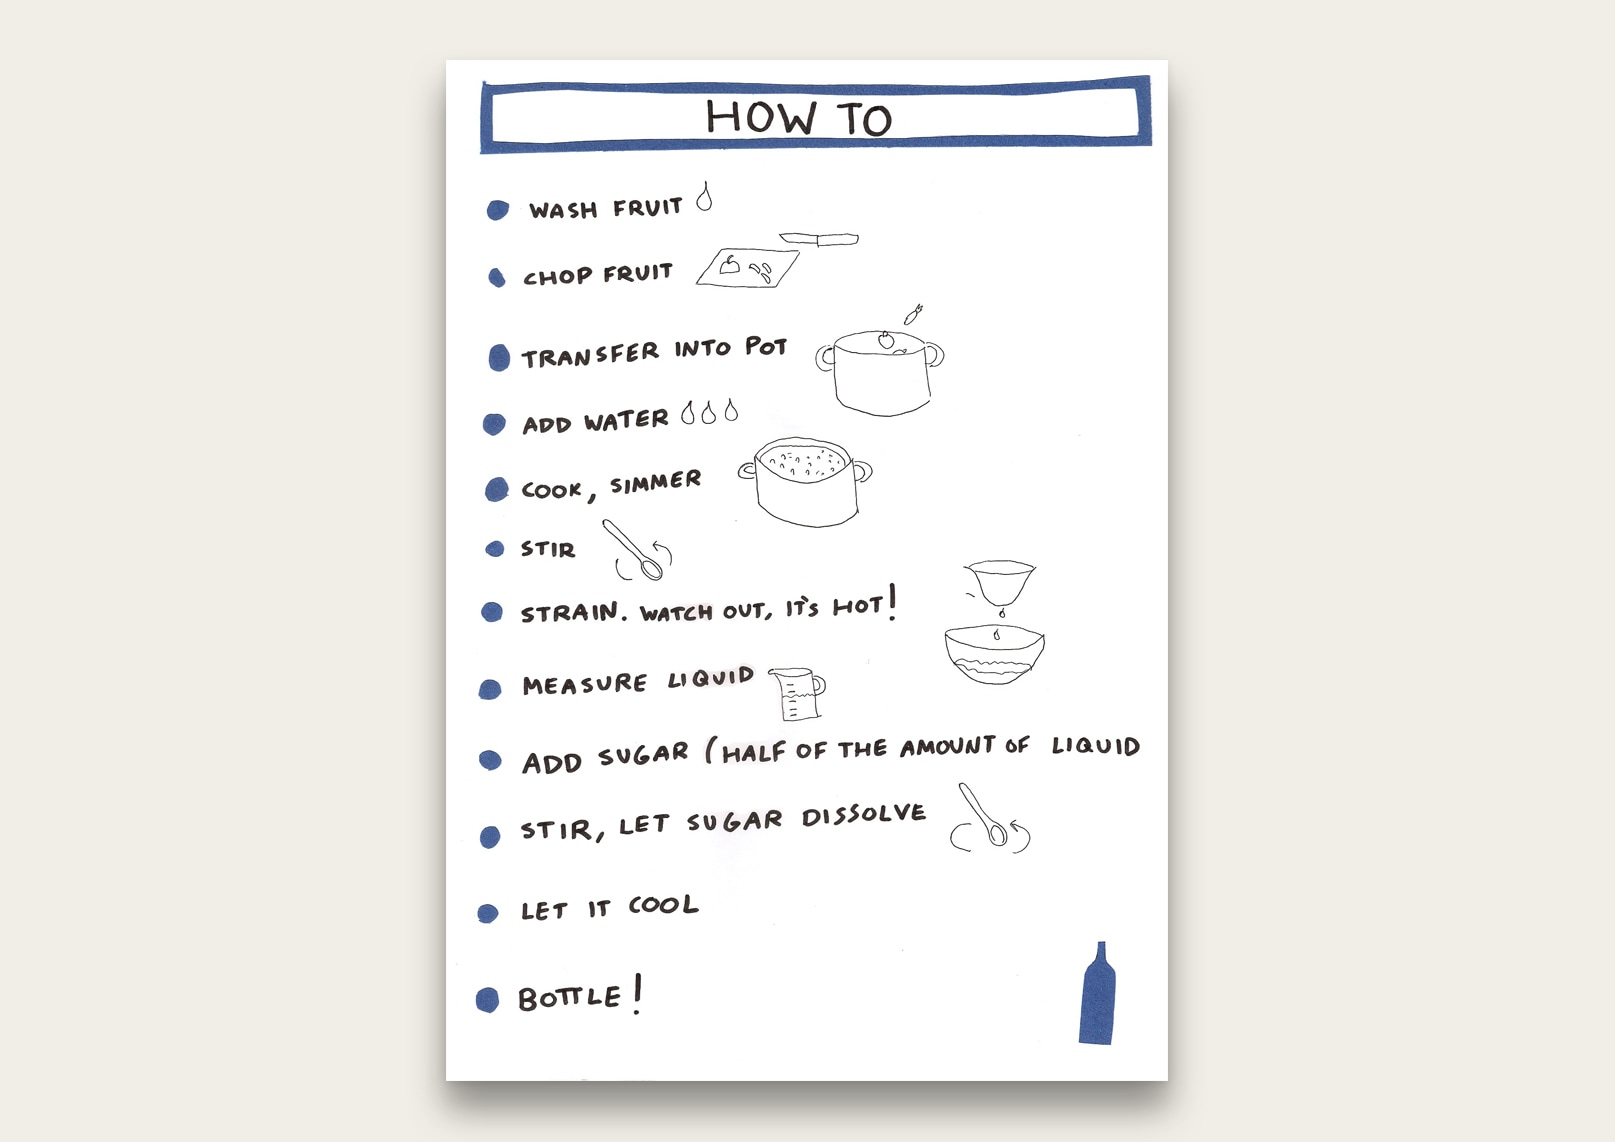 HOW TO
WASH FRUIT
CHOP FRUIT
TRANSFER INTO POT
ADD WATER
COOK, SIMMER
STIR
STRAIN. WATCH OUT, IT'S HOT!
MEASURE LIQUID
ADD SUGAR (HALF OF THE AMOUNT OF LIQUID
STIR, LET SUGAR DISSOLVE
LET IT COOL
BOTTLE!